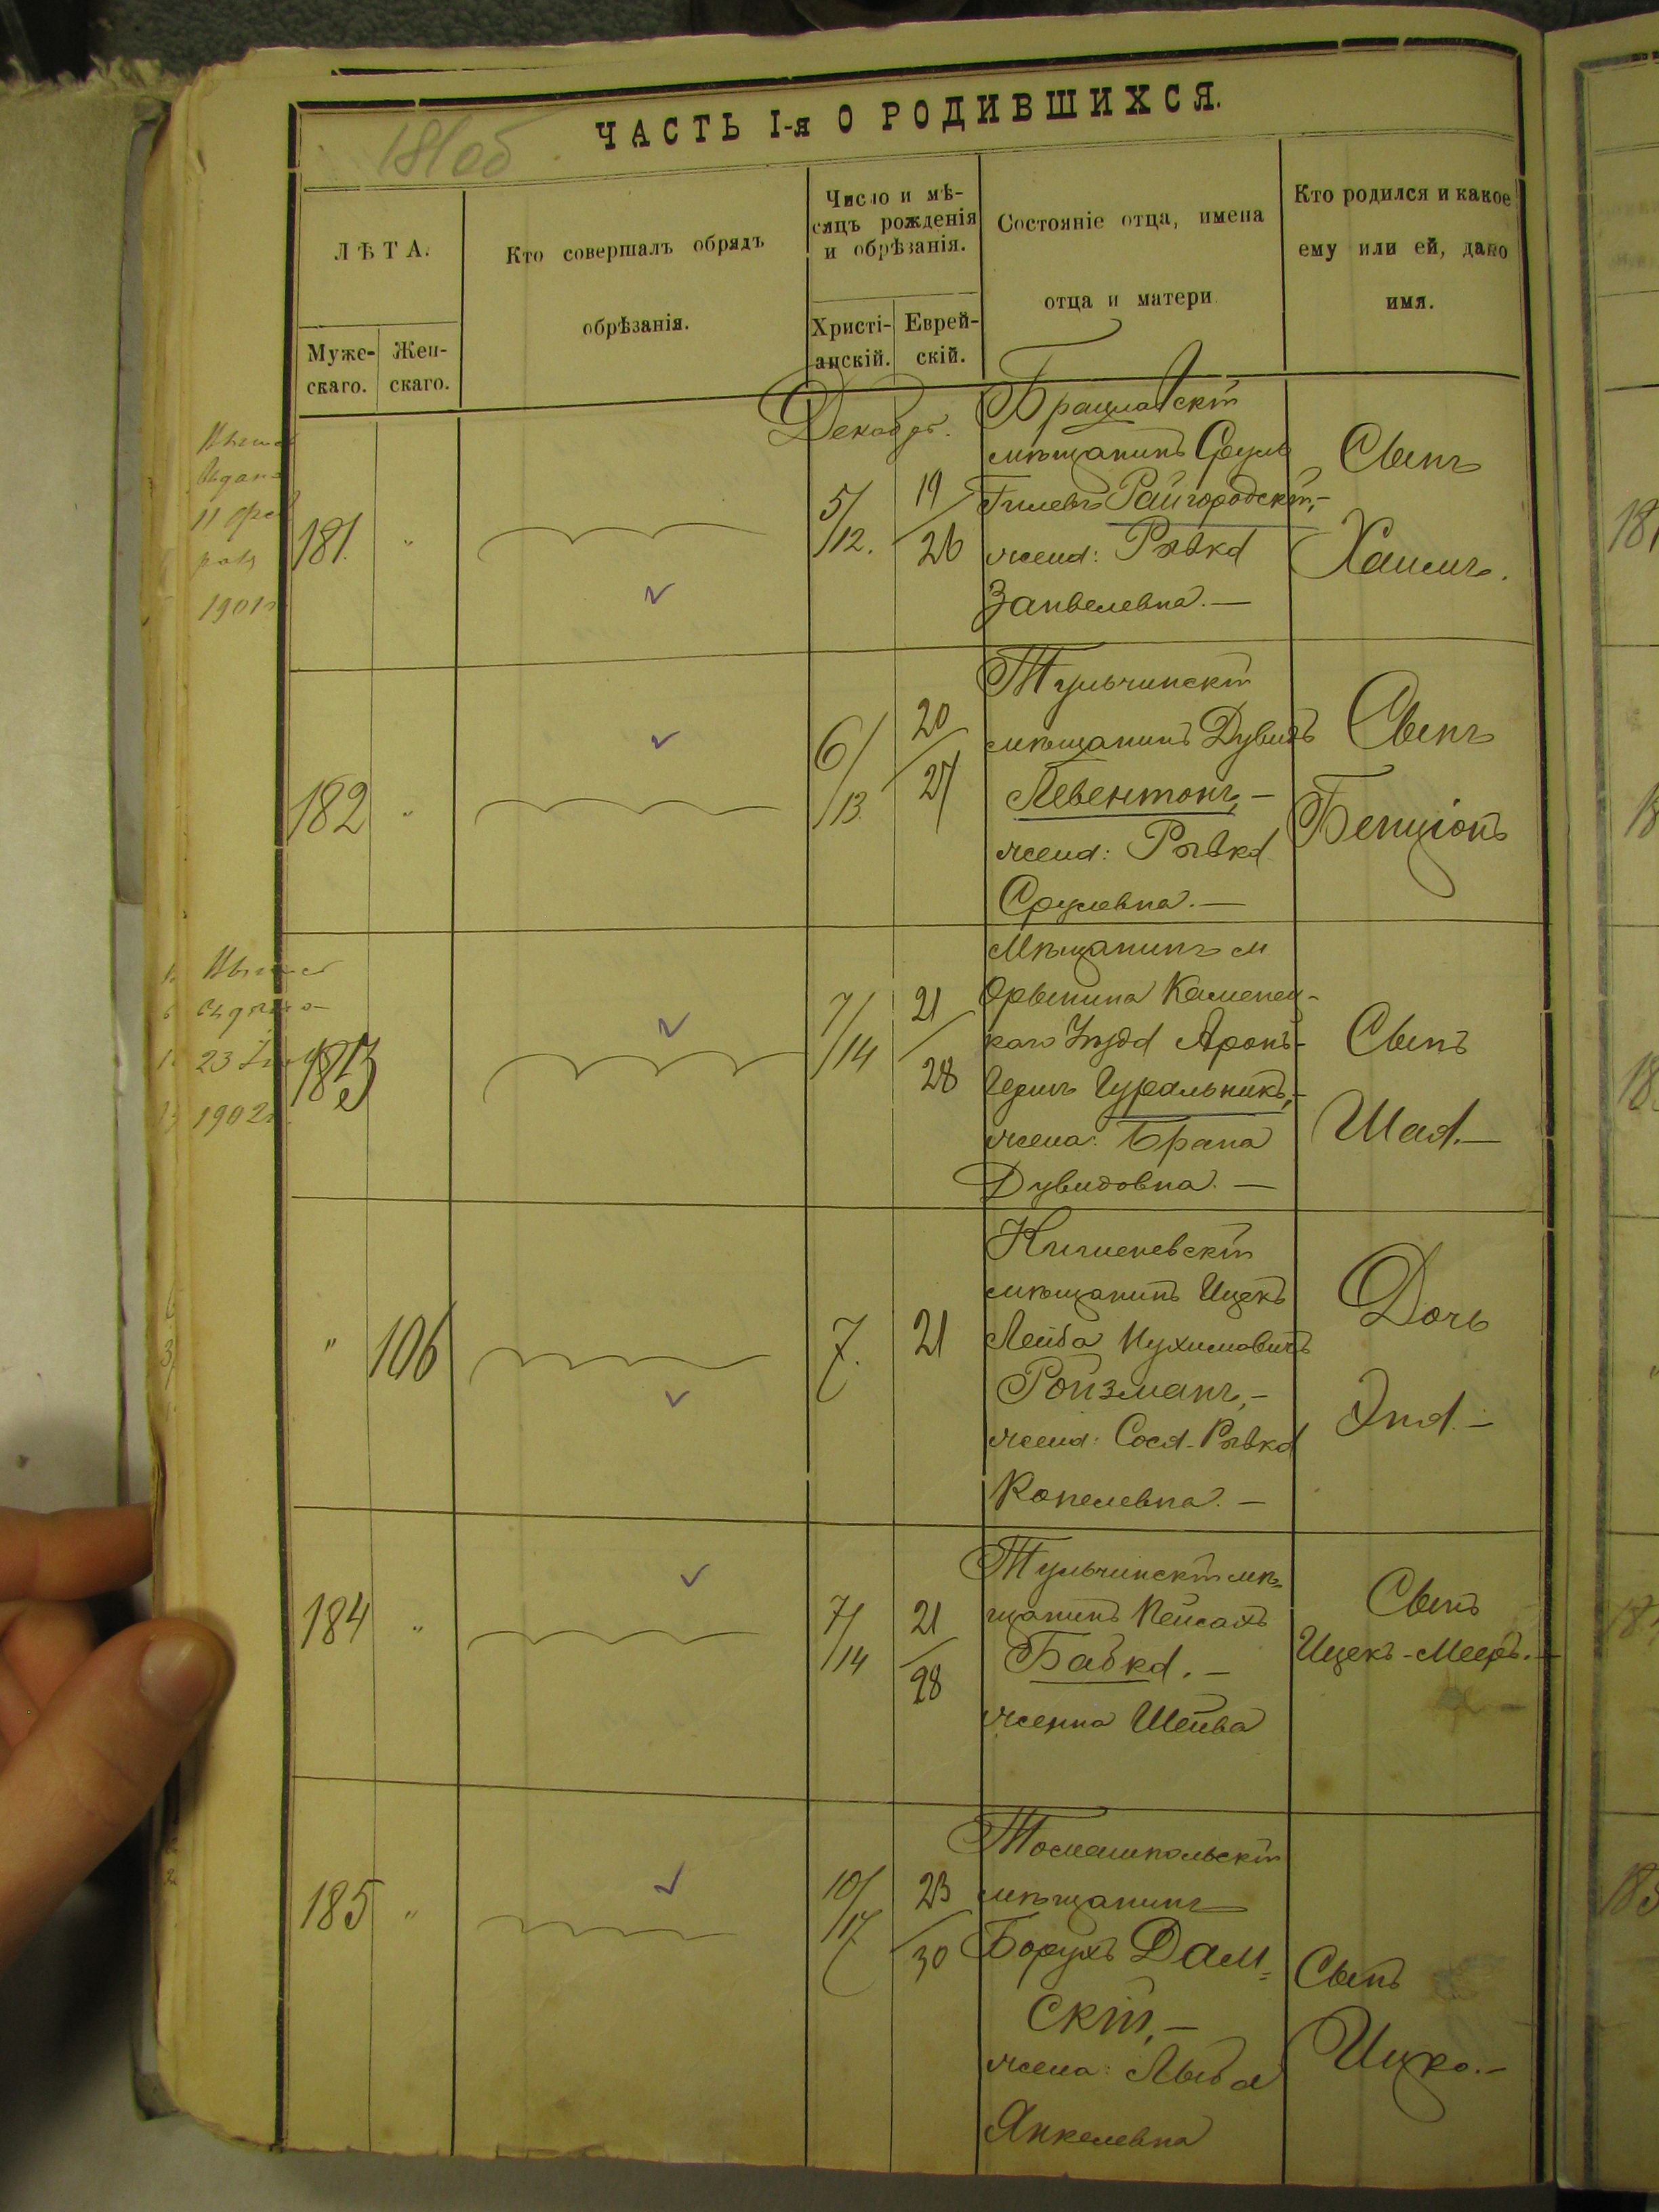 ЧАСТЬ I-я О РОДИВШИХСЯ.
181об
ЛѢТА.
Муже-
скаго.
Жен-
скаго.
Кто совершалъ обрядъ
обрѣзанія.
Число и мѣ-
сяцъ рожденія
и обрѣзанія.
Христі-
анскій.
Еврей-
скій.
Состояніе отца, имена
отца и матери
Кто родился и какое
ему или ей, дано
имя.
Декабрь.
181. "
5/12.
19/26
Брацлавскій
мѣщанинъ Сруль
Гилевъ Райгородскій,-
жена: Рывка
Занвелевна.—
Сынъ
Хаимъ.
11
1901г
182 "
6/13
20/27
Тульчинскій
мѣщанинъ Дувидъ
Левентонъ,-
жена: Рывка
Срулевна.—
Сынъ
Бенціонъ
183
7/14
21/28
Мѣщанинъ м
Орынина Каменец-
каго Уѣзда Аронъ-
Гуральникъ,-
жена: Брана
Дувидовна.—
Сынъ
Шая.—
23
1902г.
" 106
7.
21
Кишеневскій
мѣщанинъ Ицекъ
Лейба Нухимовичъ
Ройзманъ,-
жена: Сося-Рывка
Копелевна.—
Дочь
Эня.—
184 "
7/14
21/28
Тульчинскій мѣ-
щанинъ Пейсахъ
Бабка.—
женна Шейва
Сынъ
Ицекъ-Мееръ.—
185 "
10/17
23/30
Томашпольскій
мѣщанинъ
Борухъ Дам=
скій,—
жена: Лыба
Янкелевна
Сынъ
Ицко.—